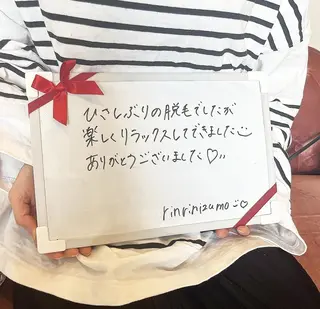 ひさしぶりの脱毛でしたが
楽しくリラックスしてできました
ありがとうございました♡
rinrinizumo ♡